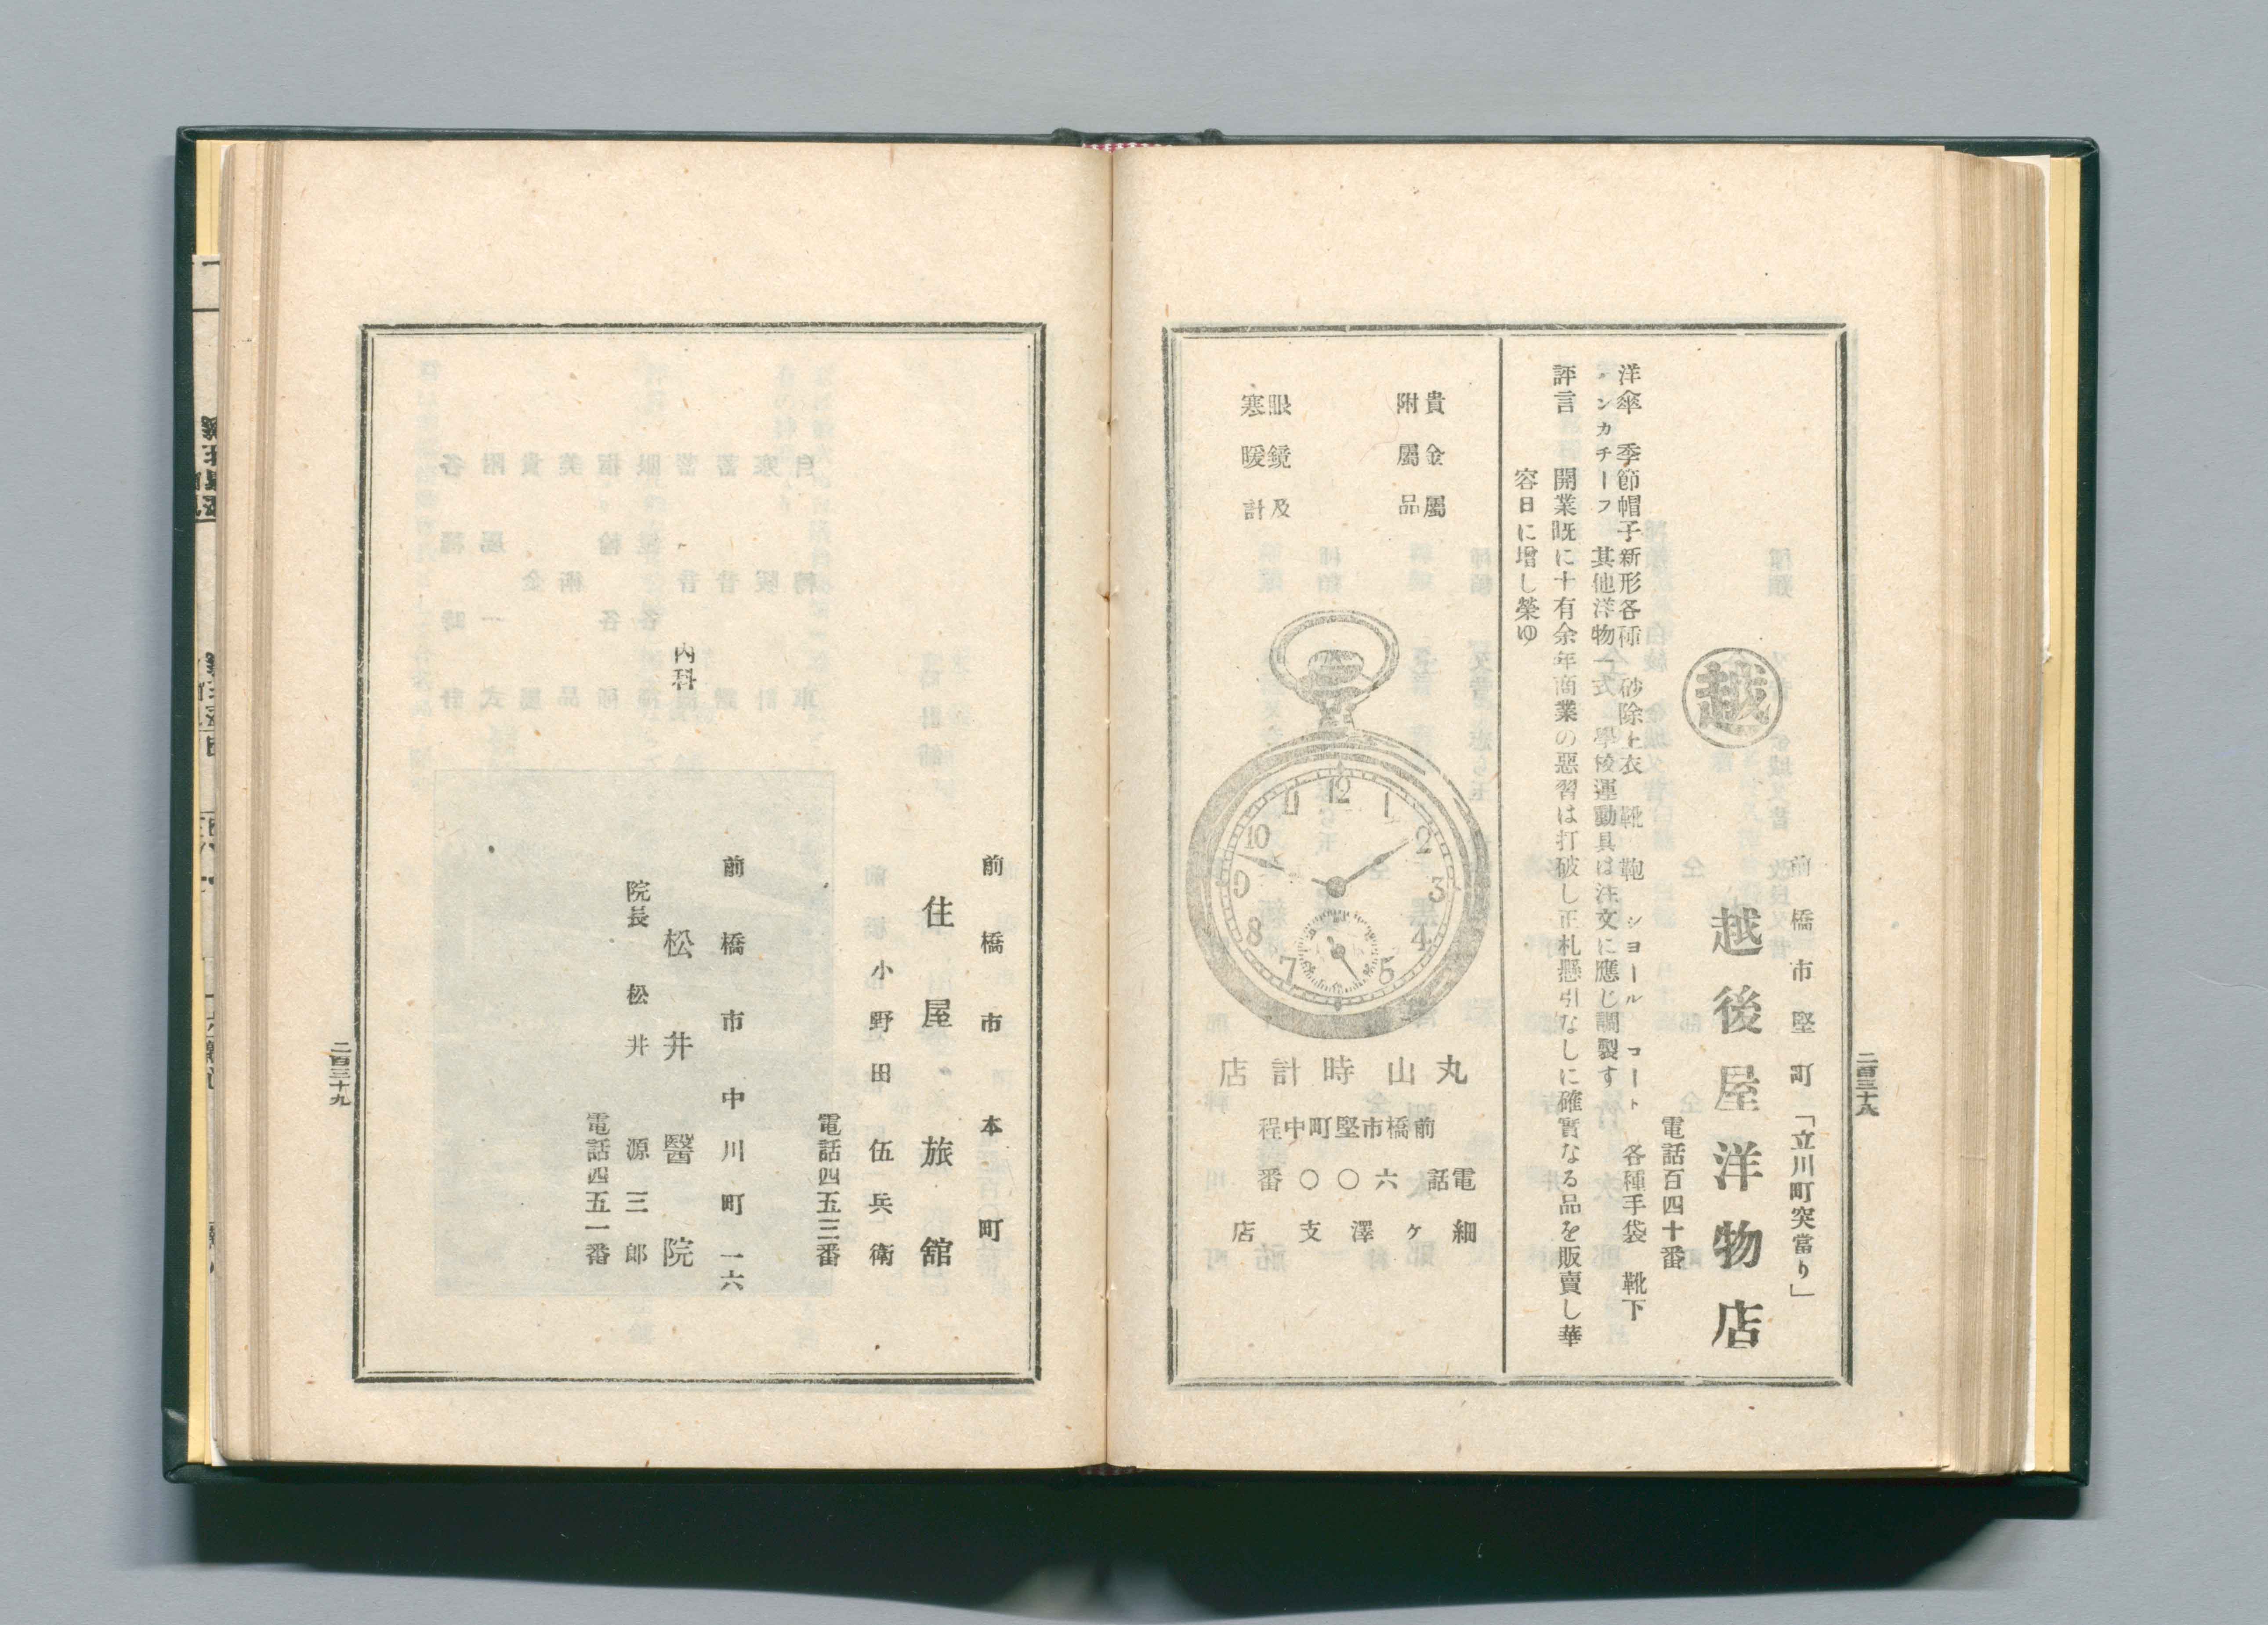 二百三十八
前橋市竪町「立川町突當り」
越
越後屋洋物店
電話百四十番
洋傘 季節帽子新形各種 砂除上衣 靴 鞄 ショール コート 各種手袋 靴下
ハンカチーフ 其他洋物一式學校運動具は注文に應じ調製す
評言 開業既に十有余年商業の惡習は打破し正札懸引なしに確實なる品を販賣し華
容日に增し榮ゆ
貴金屬
附屬品
眼鏡及
寒暖計
12
1
2
3
4
5
6
7
8
9
10
11
丸山時計店
前橋市竪町中程
電話六〇〇番
細ヶ澤支店
前橋市本町
住屋旅舘
小野田伍兵衛
電話四五三番
前橋市中川町一六
內科 松井醫院
院長 松井源三郎
電話四五一番
二百三十九